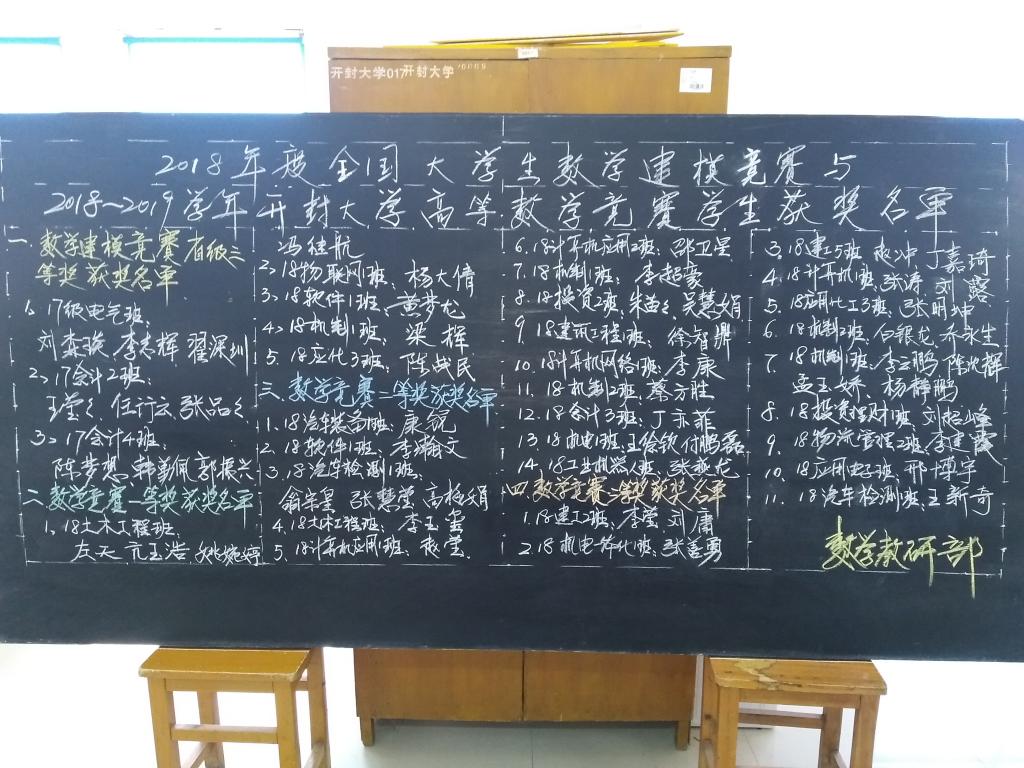 开封大学017开封大学
2018年度全国大学生数学建模竞赛与
2018~2019学年开封大学高等数学竞赛学生获奖名单
一、数学建模竞赛省级三
等奖获奖名单
1、17级电气班、
李志辉 翟深圳
2、17会计2班、
任行云 张品々
3、17会计4班、
陈梦想、郭振兴
二、数学竞赛一等奖获奖名单
1、18土木工程班、
左天亢 王浩、姚婉婷
冯佳航
2、18物联网班、杨大倩
3、18软件1班、黄梦龙
4、18机制1班、梁辉
5、18应化3班、陈战民
三、数学竞赛二等奖获奖名单
1、18汽车装备班、康锐
2、18软件1班、李瀚文
3、18汽车检测1班、
张慧莹 高极娟
4、18土木工程班、李玉莹
5、18计算机应用1班、
6、18计算机应用2班、邵卫星
7、18机制1班、李超豪
8、18投资2班、吴慧娟
9、18建筑工程班、徐智鼎
10、18计算机网络班、李康
11、18机制2班、蔡方胜
12、18会计3班、丁亦菲
13、18机电1班、王徐钦 付鹏磊
14、18工业机器人班、
四、数学竞赛三等奖获奖名单
1、18建工2班、李莹 刘庸
2、18机电简化班、张姜勇
3、18建5班、丁嘉琦
4、18计算机1班、张涛 刘露
5、18应用化工3班、张明坤
6、18机制2班、白银龙、乔永生
7、18机制1班、李云鹏、陈兆辉
孟玉娇、杨静鹏
8、18投资理财1班、刘松峰
9、18物流管理2班、李建霞
10、18应用电子班、邢博宇
11、18汽车检测1班、王新奇
数学教研部